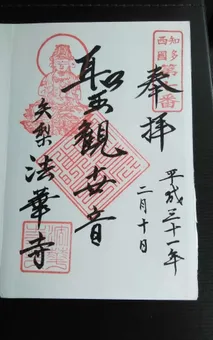 奉拝
知多
西國
第
番
平成三十一年
二月十日
聖觀世音
大梨
法華寺